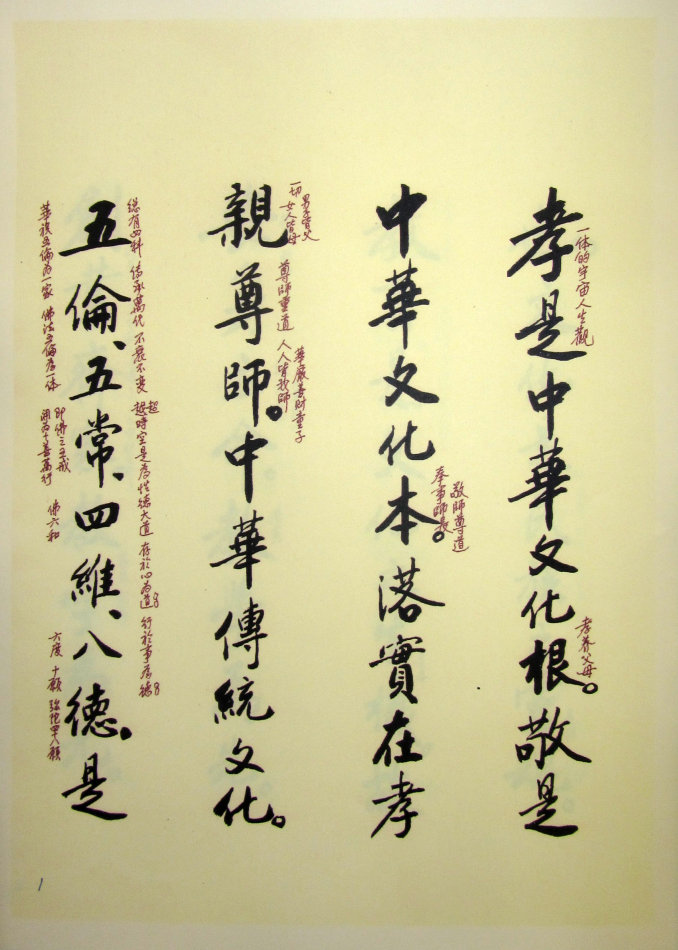 孝是中華文化根。敬是
一体的宇宙人生觀
孝養父母
中華文化本。落實在孝
敬師尊道
奉事師長
親尊師。中華傳統文化。
一切男子皆父
女人皆母
尊師重道 人人皆我師
華嚴善財童子
五倫、五常、四維、八德。是
總有四科 傳承萬代 不衰不變
超越時空是為性德大道 存於心為道 行於事為德
華族五倫為一家 佛法五倫為一体
即佛之五戒
開為十善萬行
佛六和
六度 十願
1